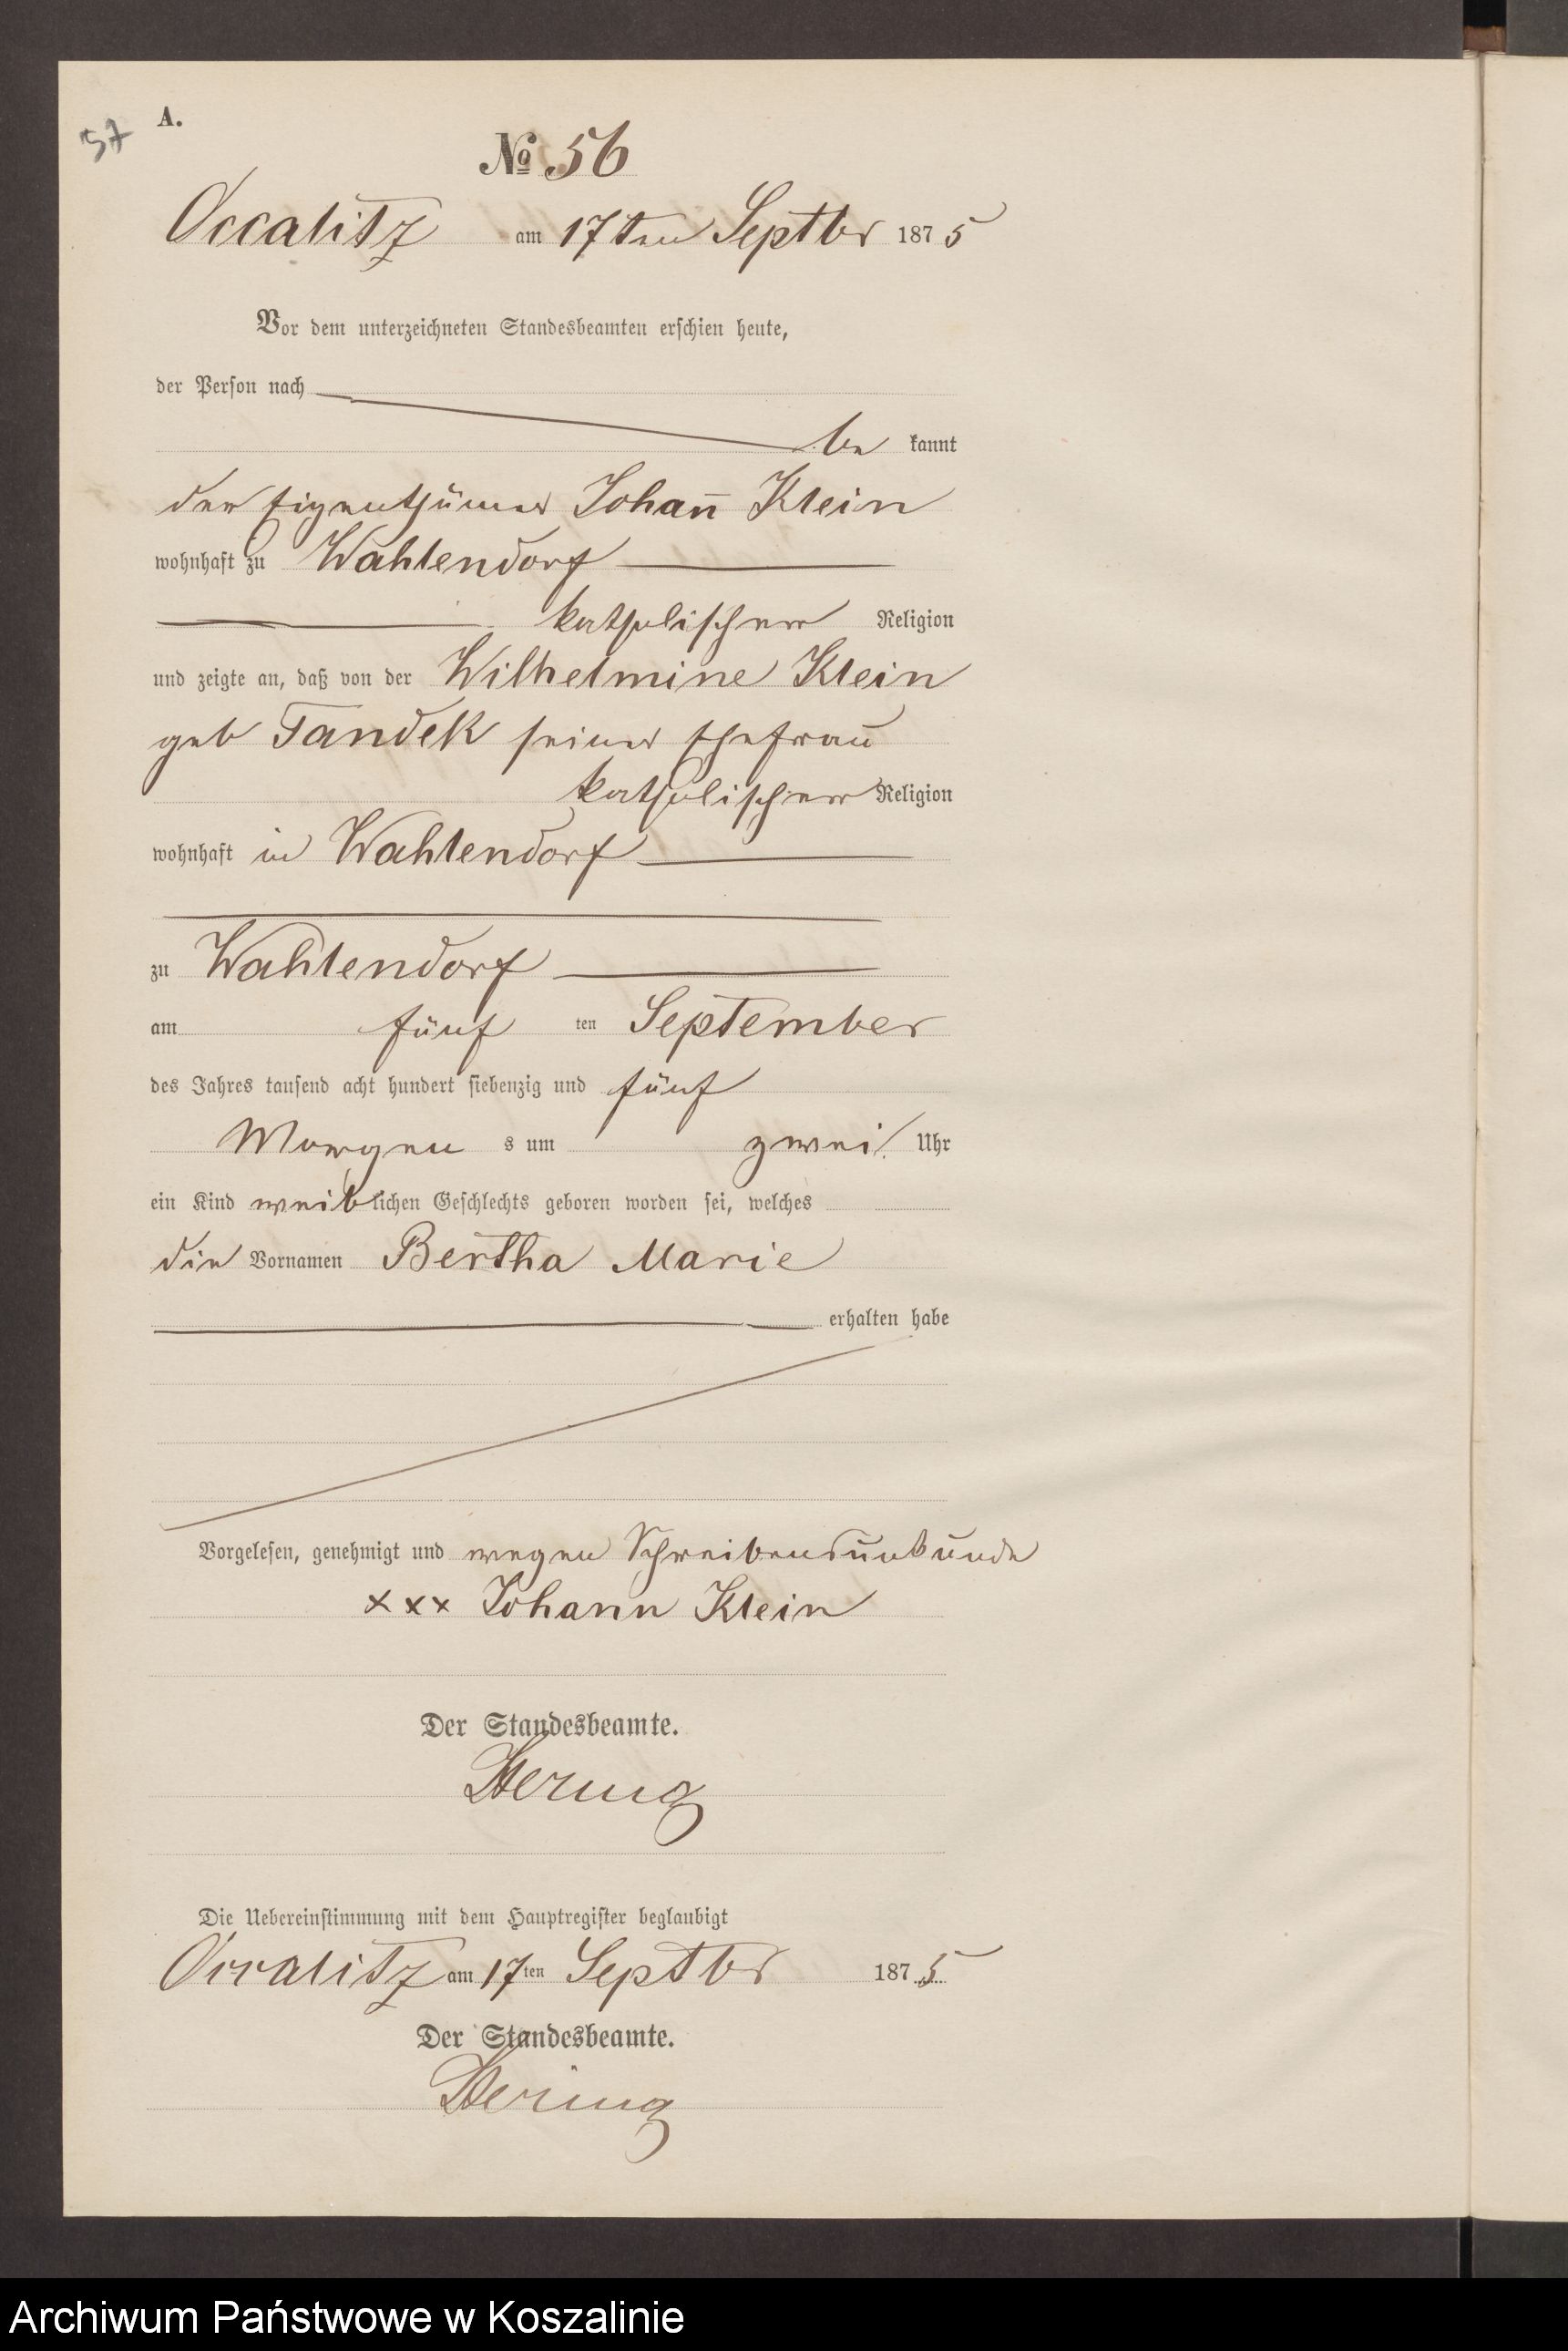 57
A.
№ 56
Occalitz am 17ten Septbr 1875
Vor dem unterzeichneten Standesbeamten erschien heute,
der Person nach
be kannt
der Eigenthümer Johan̄ Klein
wohnhaft zu Wahlendorf
katholischer Religion
und zeigte an, daß von der Wilhelmine Klein
geb Tandek seiner Ehefrau
katholischer Religion
wohnhaft in Wahlendorf
zu Wahlendorf
am fünf ten September
des Jahres tausend acht hundert siebenzig und fünf
Morgen s um zwei Uhr
ein Kind weiblichen Geschlechts geboren worden sei, welches
die Vornamen Bertha Marie
erhalten habe
Vorgelesen, genehmigt und wegen Schreibensunkunde
xxx Johann Klein
Der Standesbeamte.
Hering
Die Uebereinstimmung mit dem Hauptregister beglaubigt
Occalitz am 17ten Septbr 1875
Der Standesbeamte.
Hering
Archiwum Państwowe w Koszalinie